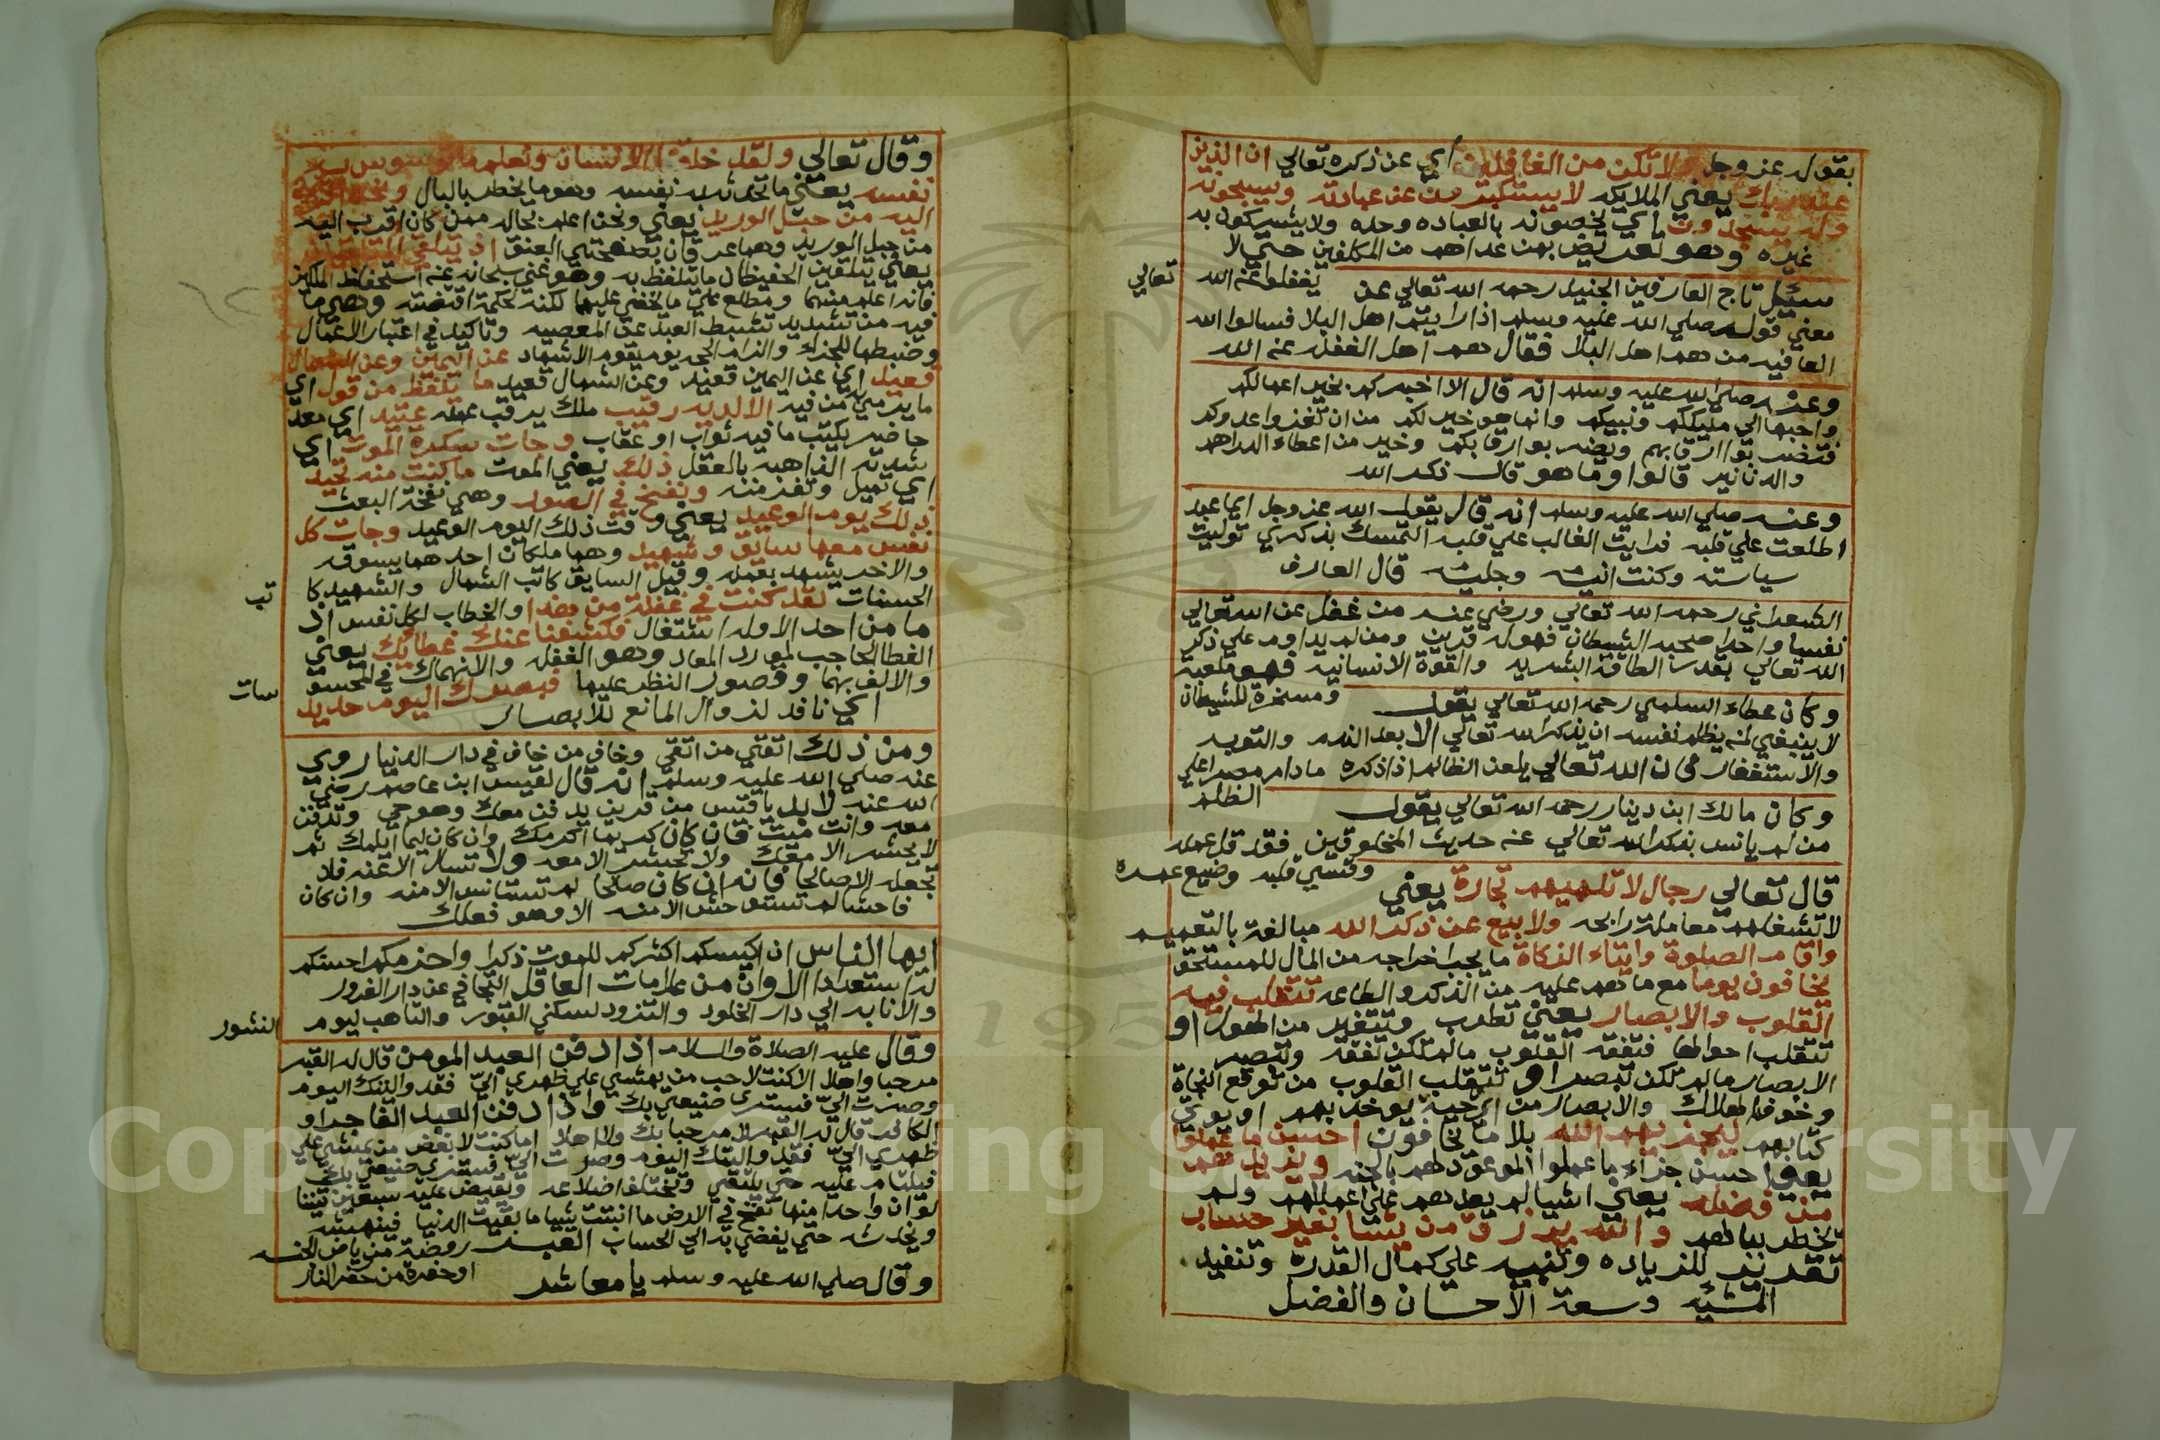 بقوله عز وجل ولا تكن من الغافلين اي عن ذكره تعالي ان الذين
عند ربك يعني الملايكه لا يستكبرون عن عبادته ويسبحونه
وله يسجدون اي يخصونه بالعباده وحده ولا يشركون به
غيره وهو تعريض بمن عداهم من المكلفين حتي لا
يغفلوا عنه الله تعالي
سئيل تاج العارفين الجنيد رحمه الله تعالي عن
معني قوله صلي الله عليه وسلم اذا رايتم اهل البلا فسالوا الله
العافيه من هم اهل البلا فقال هم اهل الغفله عنه الله
وعنه صلي الله عليه وسلم انه قال الا اخبركم بخير اعمالكم
واحبها الي مليككم ونبيكم وانما هو خير لكم من ان تغزوا عدوكم
فتضربوا ارقابهم ويضربوا رقابكم وخير من اعطاء الدراهم
والدنانير قالوا وما هو قال ذكر الله
وعنه صلي الله عليه وسلم انه قال يقول الله عز وجل ايما عبد
اطلعت علي قلبه فرايت الغالب علي قلبه التمسك بذكري توليت
سياسته وكنت انيسه وجليسه قال العارف
الشعراني رحمه الله تعالي ورضي عنه من غفل عن الله تعالي
نفسا واحدا صحبه الشيطان فهو له قرين ومن لم يداوم علي ذكر
الله تعالي بقدر الطاقة البشريه والقوة الانسانيه فهو ملعبة
ومسخرة للشيطان
وكان عطاء السلمي رحمه الله تعالي يقول
لا ينبغي لمن يظلم نفسه ان يذكر الله تعالي الا بعد الندم والتوبه
والاستغفار فان الله تعالي يلعن الظالم اذا ذكره ما دام مصرا علي
الظلم
وكان مالك ابن دينار رحمه الله تعالي يقول
من لم يانس بذكر الله تعالي عنه حديث المخلوقين فقد قل عمله
وقسي قلبه وضيع عمره
قال تعالي رجال لا تلهيهم تجارة يعني
لا تشغلهم معاملة رابحه ولا بيع عن ذكر الله مبالغة بالتعميم
واقام الصلوة وايتاء الزكاة ما يجب اخراجه من المال للمستحق
يخافون يوما مع ما هم عليه من الذكر والطاعه تتقلب فيه
القلوب والابصار يعني تطرب وتتغير من الهول او
تتقلب احوالها فتفقه القلوب ما لم تكن تفقه وتبصر
الابصار ما لم تكن تبصر او تتقلب القلوب من توقع النجاة
وخوف الهلاك والابصار من اي جهة يوخذ بهم او يوتي
كتابهم ليجزيهم الله بلا ما يخافون احسن ما عملوا
يعني احسن جزاء ما عملوا الموعود لهم بالجنه ويزيدهم
من فضله يعني اشيا لم يعدهم علي اعمالهم ولم
تخطر ببالهم والله يرزق من يشا بغير حساب
تقرير للزياده وتنبيه علي كمال القدرة وتنفيذ
المشيه وسعة الاحسان والفضل
وقال تعالي ولقد خلقنا الانسان ونعلم ما توسوس به
نفسه يعني ما تحدثه به نفسه وهو ما يخطر بالبال ونحن اقرب
اليه من حبل الوريد يعني ونحن اعلم بحاله ممن كان اقرب اليه
من حبل الوريد وهما عرقان بصفحتي العنق اذ يتلقي المتلقيان
يعني يتلقين الحفيظان ما يتلفظ به وهو غني سبحانه عنه استحفاظ الملكين
فانه اعلم منهما ومطلع علي ما يخفي عليهما لكنه لحكمة اقتضته وهي ما
فيه من تشديد تثبيط العبد عن المعصيه وتاكيد في اعتبار الاعمال
وضبطها للجزاء والزام الحجه يوم يقوم الاشهاد عن اليمين وعن الشمال
قعيد اي عن اليمين قعيد وعن الشمال قعيد ما يلفظ من قول اي
ما يرمي من فيه الا لديه رقيب ملك يرقب عمله عتيد اي معد
حاضر يكتب ما فيه ثواب او عقاب وجات سكرة الموت اي
شدته الذاهبه بالعقل ذلك يعني الموت ما كنت منه تحيد
اي تميل وتفر منه ونفخ في الصور وهي نفخة البعث
ذلك يوم الوعيد يعني وقت ذلك اليوم الوعيد وجات كل
نفس معها سايق وشهيد وهما ملكان احدهما يسوقه
والاخر يشهد بعمله وقيل السايق كاتب الشمال والشهيد كا
تب
الحسنات لقد كنت في غفلة من هذا والخطاب لكل نفس اذ
ما من احد الا وله اشتغال فكشفنا عنك غطائك يعني
الغطا الحاجب لمورد المعاد وهو الغفله والانهماك في المحسو
سات
والالف بهما وقصور النظر عليها فبصرك اليوم حديد
اي نافذ لزوال المانع للابصار
ومن ذلك اتقي من اتقي وخاف من خاف في دار الدنيا روي
عنه صلي الله عليه وسلم انه قال لقيس ابن عاصم رضي
الله عنه لا بد يا قيس من قرين يدفن معك وهو حي وتدفن
معه وانت ميت فان كان كريما اكرمك وان كان ليما ايلمك ثم
لا يحشر الا معك ولا تحشر الا معه ولا تسال الا عنه فلا
تجعله الا صالحا فانه ان كان صالحا لم تستانس الا منه وان كان
فاحشا لم تستوحش الا منه الا وهو فعلك
ايها الناس ان اكيسكم اكثركم للموت ذكرا واحزمكم احسنكم
له استعدادا الا وان من علامات العاقل التجافي عن دار الغرور
والانابه الي دار الخلود والتزود لسكني القبور والتاهب ليوم
النشور
وقال عليه الصلاة والسلام اذا دفن العبد المومن قال له القبر
مرحبا واهلا الا كنت لاحب من يمشي علي ظهري الي فقد وليتك اليوم
وصرت الي فستري صنيعي بك واذا دفن العبد الفاجر او
الكافر قال له القبر لا مرحبا بك ولا اهلا اما كنت لابغض من يمشي علي
ظهري الي فقد وليتك اليوم وصرت الي فستري صنيعي بك
فيلتام عليه حتي يلتقي وتختلف اضلاعه ويقيض عليه سبعين تنينا
لو ان واحدا منها نفخ في الارض ما انبتت شييا ما بقيت الدنيا فينهشنه
ويخدشنه حتي يفضي به الي الحساب القبر روضة من رياض الجنه
او حفرة من حفر النار
وقال صلي الله عليه وسلم يا معاشر
Copyright © King Saud University
195